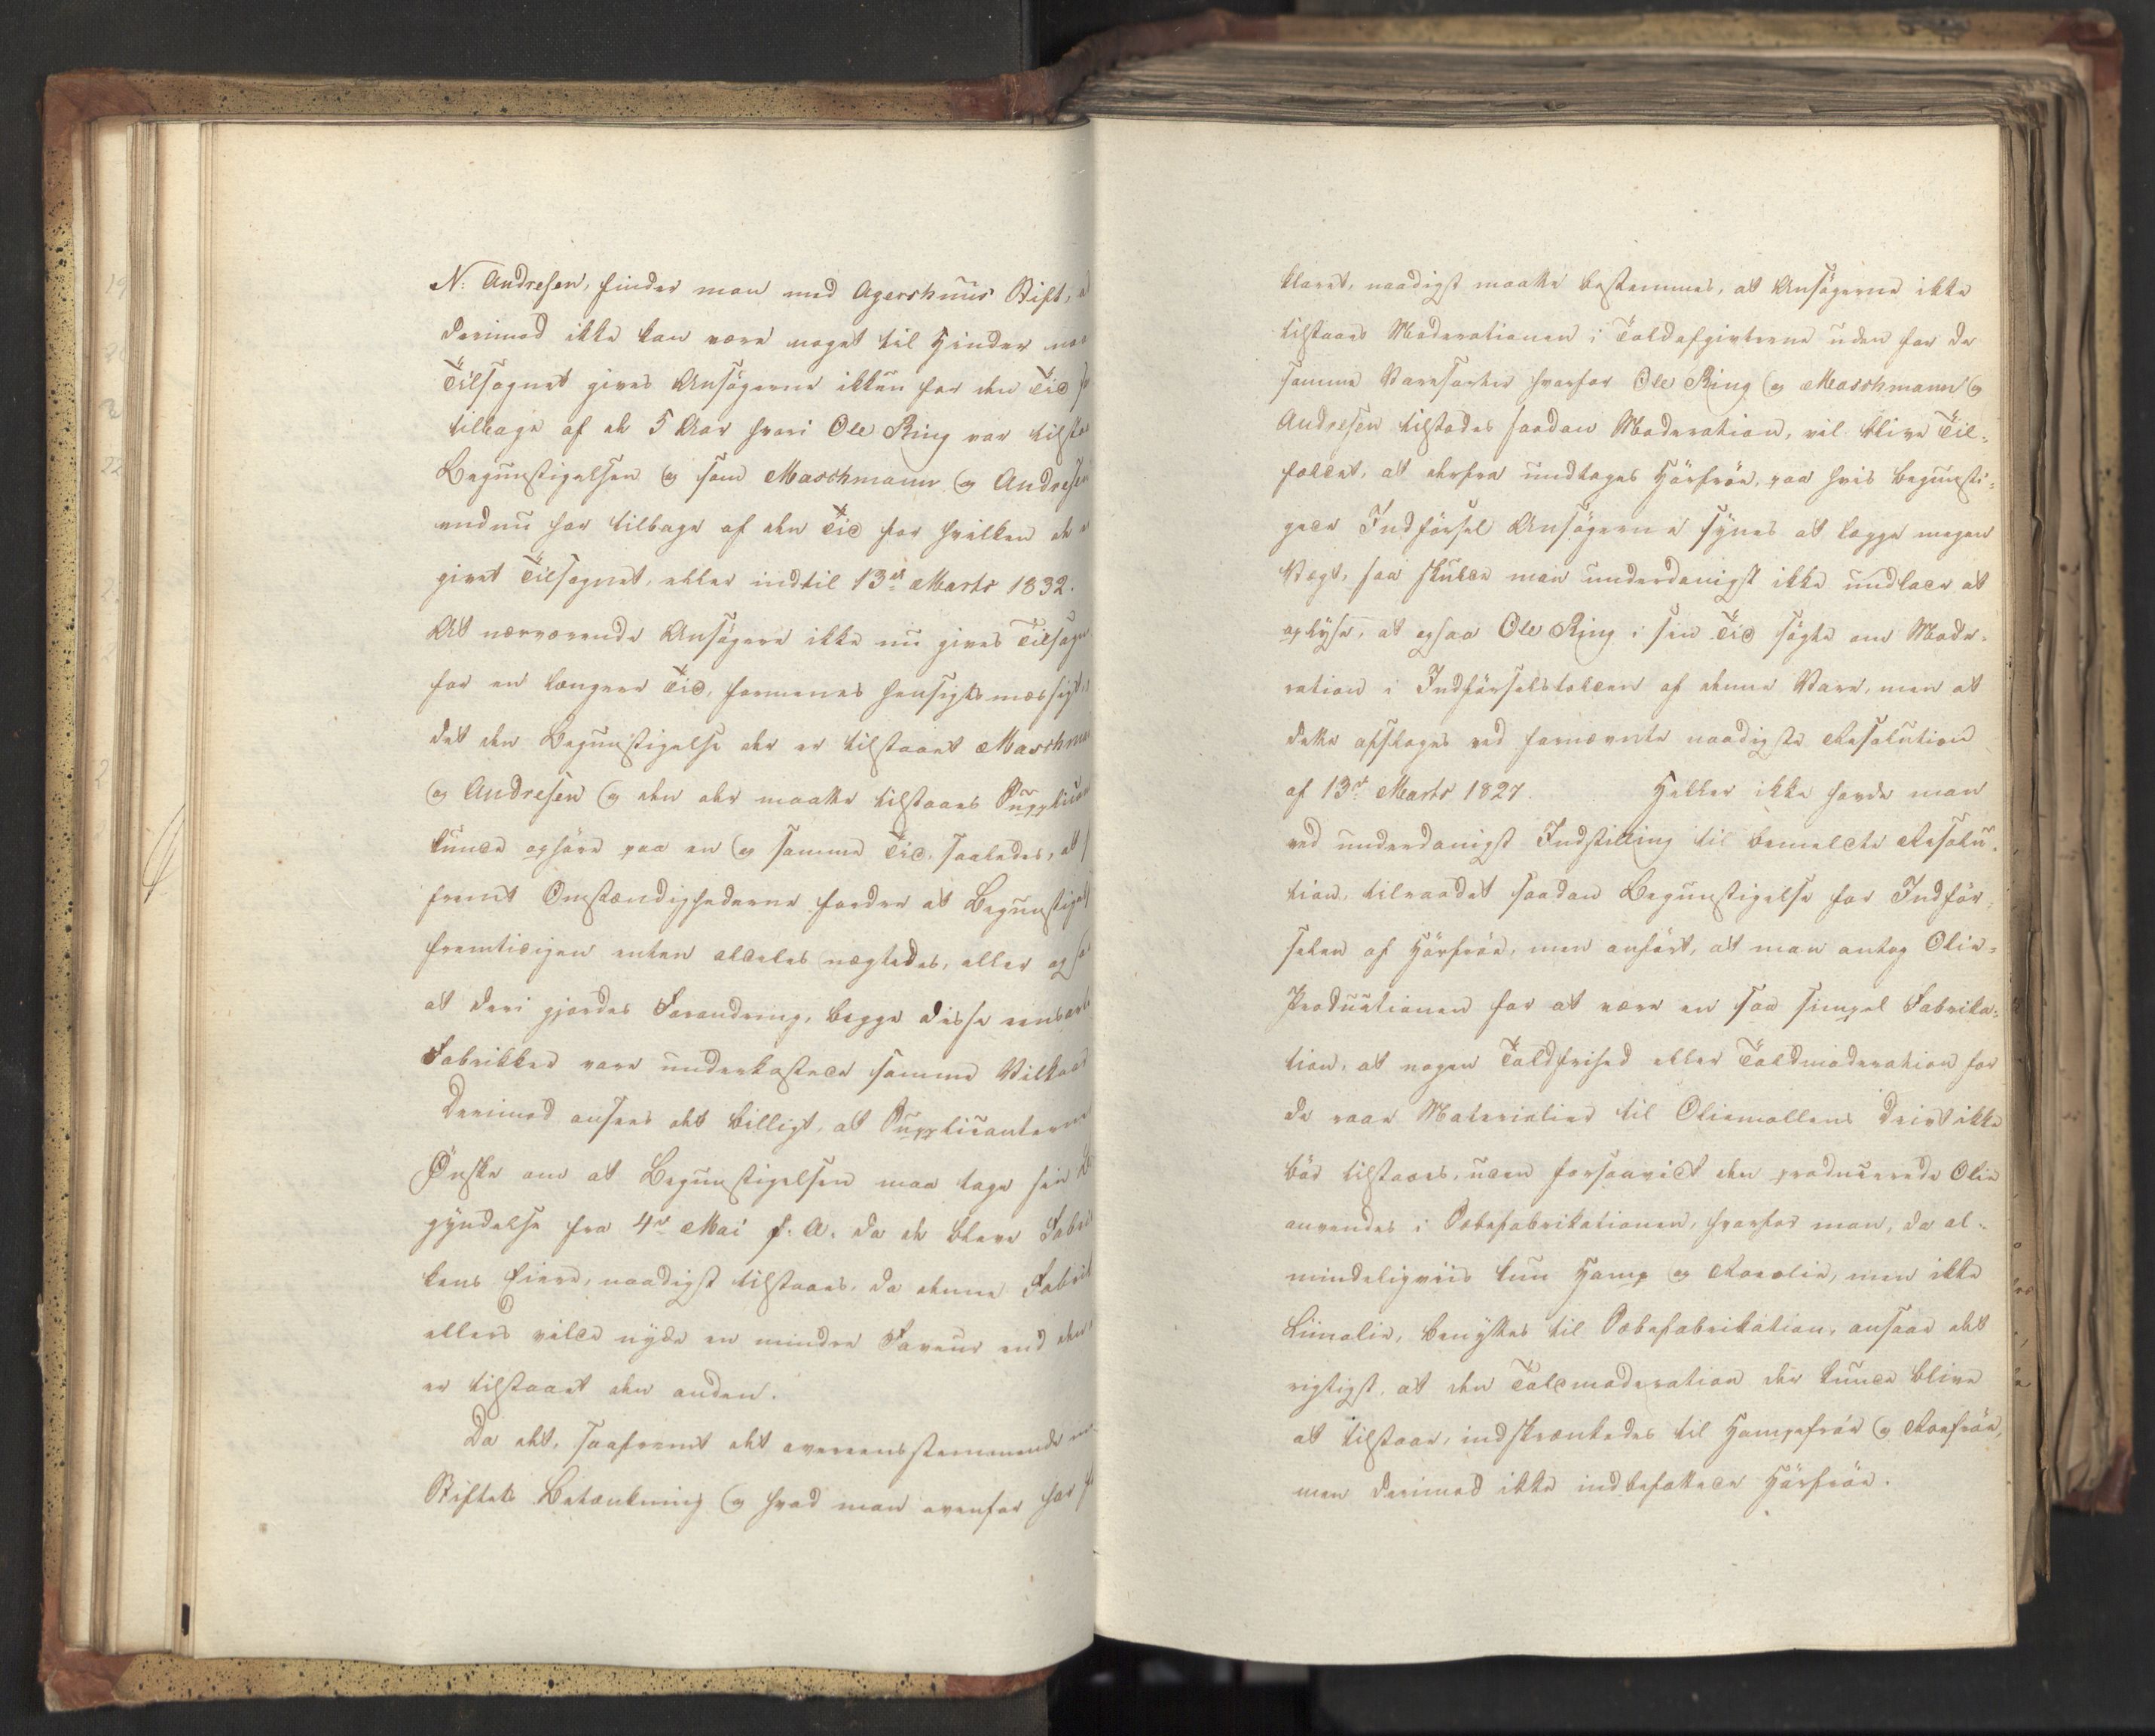 N: Andresen, finder man med Agershuus Stift,
derimod ikke kan være noget til Hinder naar
Tilsagnet gives Ansögerne ikkun for den Tid
tilbage af de 5 Aar hvori Ole Ring var tilstaaet
Begunstigelsen og som Maschmann og Andresen
endnu har tilbage af den Tid for hvilken de
givet Tilsagnet, eller indtil 13de Marts 1832.
At nærværende Ansögere ikke nu gives Tilsagn
for en længere Tid, formenes hensigtsmæssigt,
dat den Begunstigelse der er tilstaaet Maschmann
og Andresen og den der maatte tilstaaes Supplican
kunde ophöre paa en og samme Tid, saaledes, at
fremt Omstændighederne fordre at Begunstigels
fremtidigen enten aldeles nægtedes, eller og
at deri gjordes Forandring, begge disse eensart
Fabrikker vare underkastede samme Vilkaar
Derimod ansees det billigt, at Supplicanternes
Önske om at Begunstigelsen maa tage sin Be
gyndelse fra 4de Mai f. A. da de bleve Fabri
kens Eiere, naadigst tilstaaes, da denne Fabrik
ellers vilde nyde en mindre Faveur end den,
er tilstaaet den anden.
Da det, saafremt det overeensstemmende
Stiftets Betænkning og hvad man ovenfor har
klaret, naadigst maatte bestemmes, at Ansögerne ikke
tilstaaes Moderationen i Toldafgivterne uden for de
samme Varesorter hvorfor Ole Ring og Maschmann og
Andresen tilstodes saadan Moderation, vil blive Til-
fældet, at derfra undtages Hörfröe, paa hvis begunsti-
gede Indförsel Ansögerne synes at lægge megen
Vægt, saa skulde man underdanigst ikke undlade at
oplyse, at ogsaa Ole Ring i sin Tid sögte om Mode-
ration i Indförselstolden af denne Vare, men at
dette afsloges ved fornævnte naadigste Resolution
af 13de Marts 1827. Heller ikke havde man
ved underdanigst Indstilling til bemeldte Resolu-
tion, tilraadet saadan Begunstigelse for Indför-
selen af Hörfröe, men anfört, at man antog Olie-
Productionen for at være en saa simpel Fabrika-
tion, at nogen Toldfrihed eller Toldmoderation for
de raae Materialier til Oliemöllens Drivt ikke
bör tilstaaes, uden forsaavidt den producerede Olie
anvendes i Sæbefabrikationen, hvorfor man, da al-
mindeligviis kun Hamp og Roeolie, men ikke
Liinolie, benyttes til Sæbefabrikation, ansaae det
rigtigst, at den Toldmoderation der kunde blive
at tilstaae, indskrænkedes til Hampefröe og Roefröe,
men derimod ikke indbefattede Hörfröe.